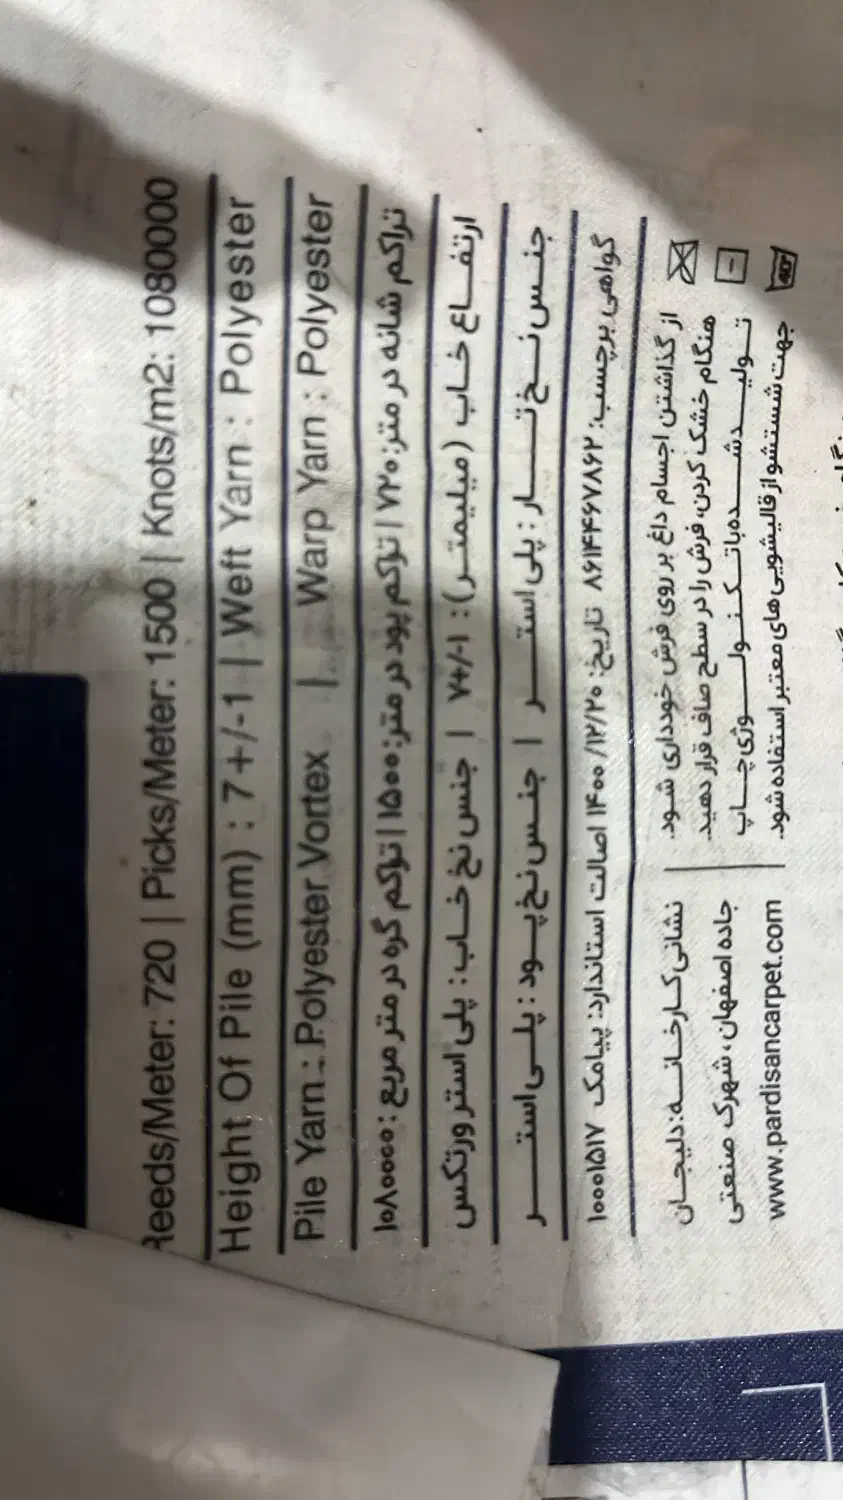 Reeds/Meter: 720 | Picks/Meter: 1500 | Knots/m2: 1080000
Height Of Pile (mm) : 7+/-1 | Weft Yarn : Polyester
Pile Yarn : Polyester Vortex | Warp Yarn : Polyester
تراکم شانه در متر: ۷۲۰ | تراکم پود در متر: ۱۵۰۰ | تراکم گره در متر مربع: ۱۰۸۰۰۰۰
ارتفاع خاب (میلیمتر): ۷+/-۱ | جنس نخ خاب: پلی استر ورتکس
جنس نخ تار: پلی استر | جنس نخ پود: پلی استر
گواهی برچسب: ۸۶۱۴۴۶۷۸۶۲ تاریخ: ۱۴۰۰/۱۲/۲۰ اصالت استاندارد: پیامک ۱۰۰۰۱۵۱۷
از گذاشتن اجسام داغ بر روی فرش خودداری شود.
هنگام خشک کردن، فرش را در سطح صاف قرار دهید.
تولید شده با تکنولوژی چاپ
جهت شستشو از قالیشویی های معتبر استفاده شود.
نشانی کارخانه: دلیجان
جاده اصفهان، شهرک صنعتی
www.pardisancarpet.com